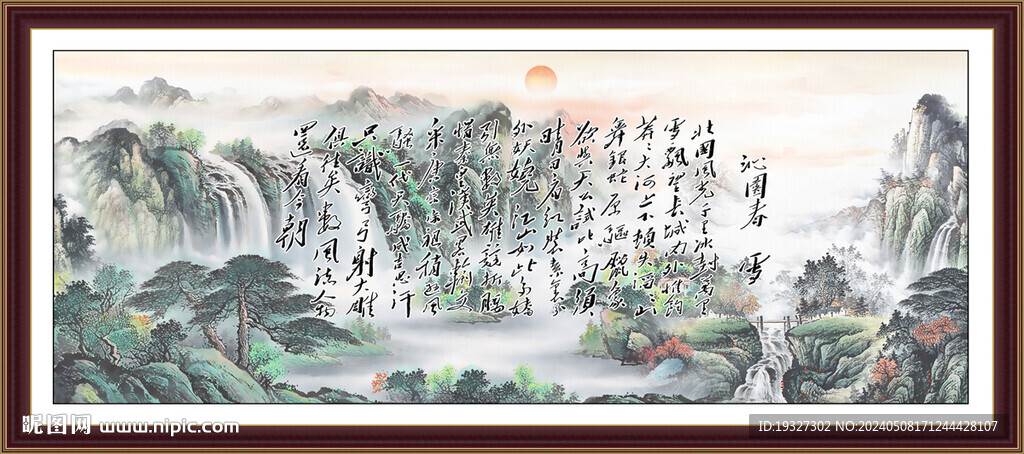 沁園春 雪
北国風光千里冰封萬里
雪飄望長城内外惟餘
莽々大河上下頓失滔々山
舞銀蛇原驅蠟象
欲与天公試比高須
晴日看红装素裹
外妖嬈江山如此多嬌
引無數英雄競折腰
惜秦皇漢武略輸文
采唐宗宋祖稍遜風
騷一代天驕成吉思汗
只識彎弓射大雕
俱往矣數風流人物
還看今朝
昵图网 www.nipic.com
ID:19327302 NO:20240508171244428107